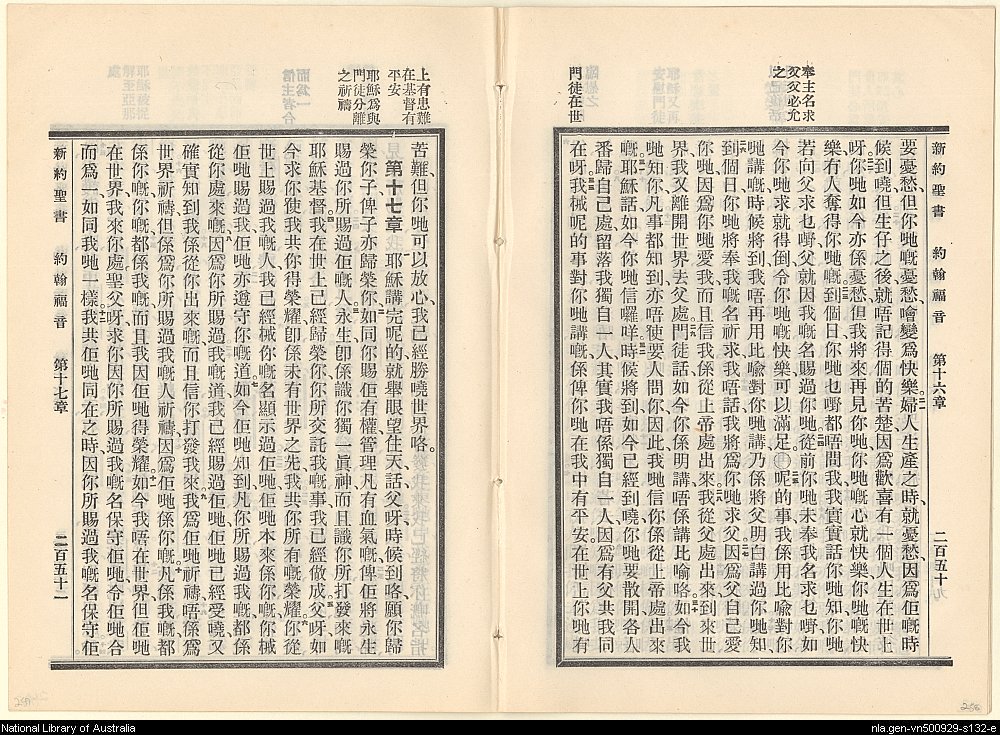 新約聖書 約翰福音 第十六章 二百五十九
奉主名求
父父必允
之
門徒在世
要憂愁、但你哋嘅憂愁、噲變爲快樂、婦人生產之時、就憂愁、因爲佢嘅時
候到嘵、但生仔之後、就唔記得個的苦楚、因爲歡喜有一個人生在世上
呀、你哋如今亦係憂愁、但我將來再見你哋、你哋嘅心就快樂、你哋嘅快
樂冇人奪得你哋嘅、到個日你哋乜嘢都唔問我、我實實話你哋知、你哋
若向父求乜嘢、父就因我嘅名賜過你哋、從前你哋未奉我名求乜嘢、如
今你哋求就得倒、令你哋嘅快樂可以滿足。呢的事我係用比喻對你
哋講嘅、時候將到、我唔再用比喻對你哋講、乃係將父明白講過你哋知、
到個日你哋將奉我嘅名祈求、我唔話我將爲你哋求父、因爲父自己愛
你哋、因爲你哋愛我、而且信我係從上帝處出來、我從父處出來到來世
界、我又離開世界去父處、門徒話、如今你係明講、唔係講比喻咯、如今我
哋知你凡事都知到、亦唔使要人問你、因此我哋信你係從上帝處出來
嘅、耶穌話、如今你哋信囉咩、時候將到、如今已經到嘵、你哋要散開、各人
番歸自己處、留落我獨自一人、其實我唔係獨自一人、因爲有父共我同
在呀、我械呢的事對你哋講嘅、係俾你哋在我中有平安、在世上你哋有
上有患難
在基督有
平安
耶穌爲與
門徒分離
之祈禱
苦難、但你哋可以放心、我已經勝嘵世界咯。
第十七章 耶穌講完呢的、就舉眼望住天話、父呀、時候到咯、願你歸
榮你子、俾子亦歸榮你、如同你賜佢有權管理凡有血氣嘅、俾佢將永生
賜過你所賜過佢嘅人、永生卽係識你獨一眞神、而且識你所打發來嘅
耶穌基督、我在世上已經歸榮你、你所交託我嘅事、我已經做成、父呀、如
今求你使我共你得榮耀、卽係未有世界之先、我共你所有嘅榮耀、你從
世上賜過我嘅人、我已經械你嘅名顯示過佢哋、佢哋本來係你嘅、你械
佢哋賜過我、佢哋亦遵守你嘅道、如今佢哋知到凡你所賜過我嘅、都係
從你處來嘅、因爲你所賜過我嘅道、我已經賜過佢哋、佢哋已經受嘵、又
確實知到我係從你出來嘅、而且信你打發我來、我爲佢哋祈禱、唔係爲
世界祈禱、但係爲你所賜過我嘅人祈禱、因爲佢哋係你嘅、凡係我嘅都
係你嘅、你嘅都係我嘅、而且我因佢哋得榮耀、如今我唔在世界、但佢哋
在世界、我來你處、聖父呀、求你因你所賜過我嘅名、保守佢哋、令佢哋合
而爲一、如同我哋一樣、我共佢哋同在之時、因你所賜過我嘅名保守佢
新約聖書 約翰福音 第十七章 二百五十二
National Library of Australia
nla.gen-vn500929-s132-e